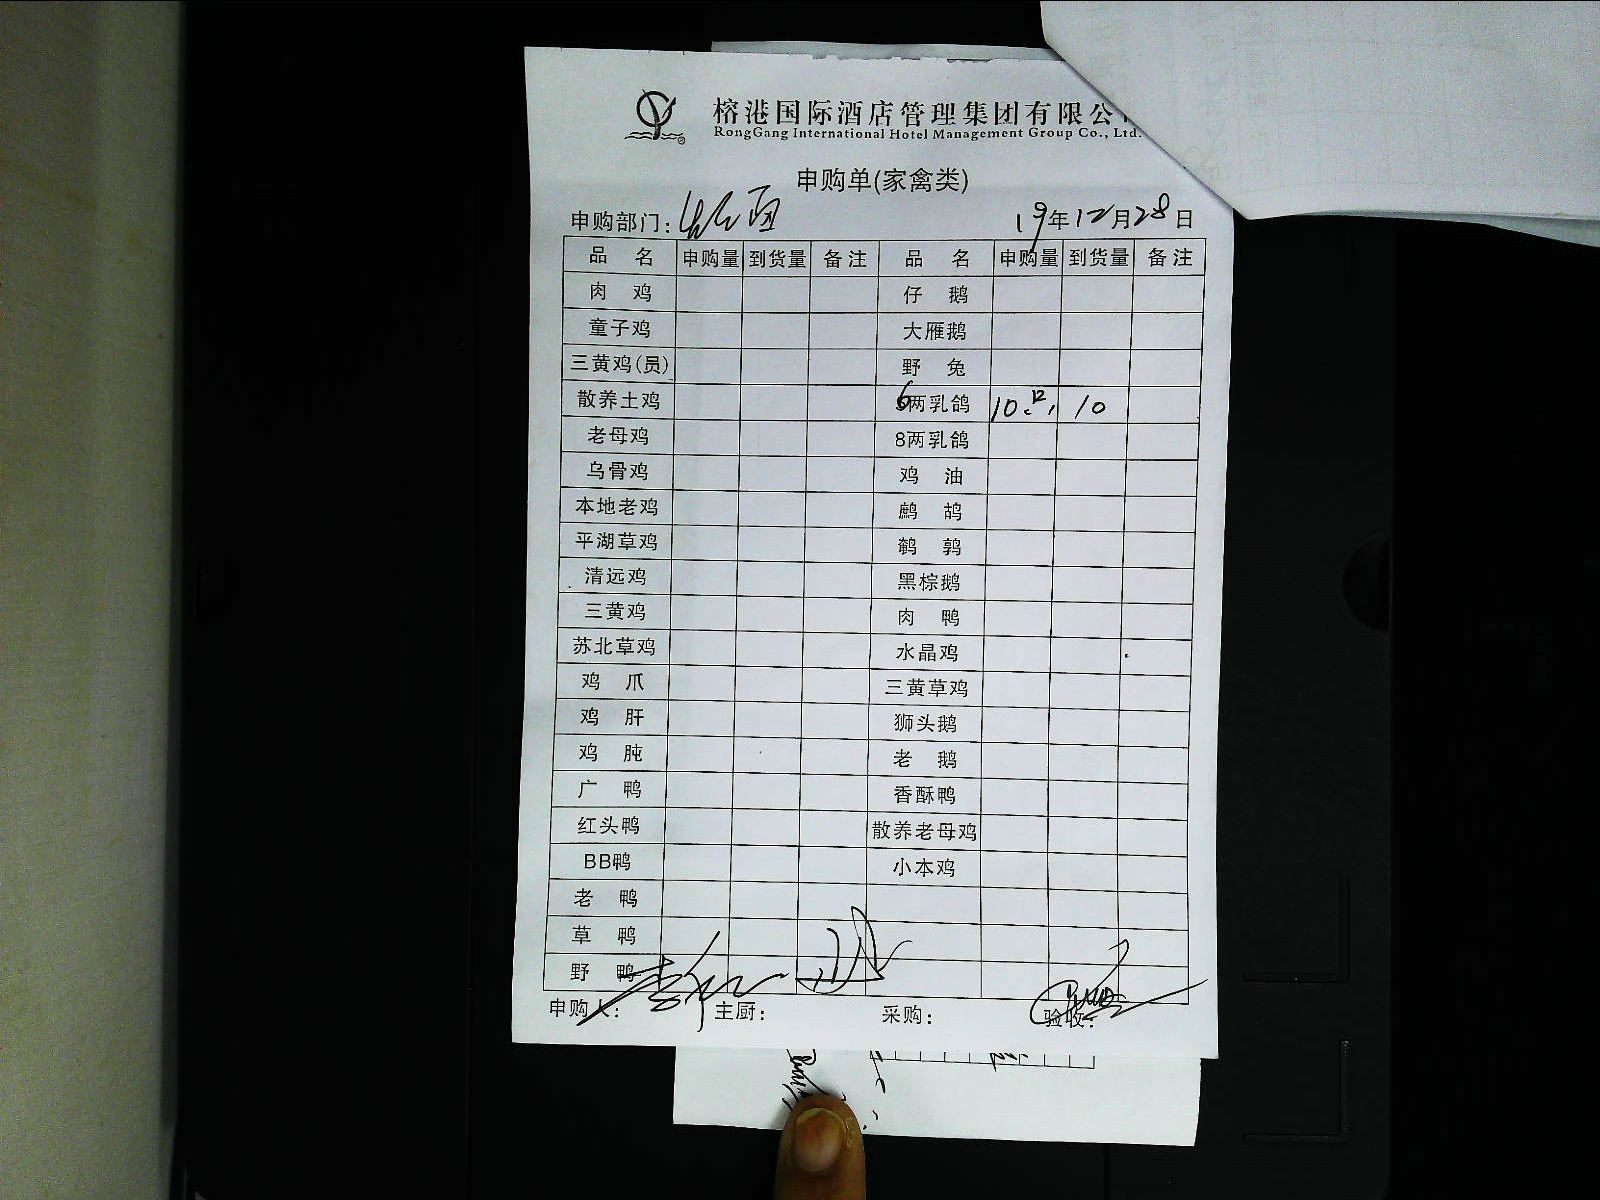 榕港国际酒店管理集团有限公
RongGang International Hotel Management Group Co., Ltd.
申购单(家禽类)
申购部门: 19年12月28日
品名 申购量 到货量 备注 品名 申购量 到货量 备注
肉鸡 仔鹅
童子鸡 大雁鹅
三黄鸡(员) 野兔
散养土鸡 6两乳鸽 10. 10
老母鸡 8两乳鸽
乌骨鸡 鸡油
本地老鸡 鹧鸪
平湖草鸡 鹌鹑
清远鸡 黑棕鹅
三黄鸡 肉鸭
苏北草鸡 水晶鸡
鸡爪 三黄草鸡
鸡肝 狮头鹅
鸡肫 老鹅
广鸭 香酥鸭
红头鸭 散养老母鸡
BB鸭 小本鸡
老鸭
草鸭
野鸭
申购人: 主厨: 采购: 验收: